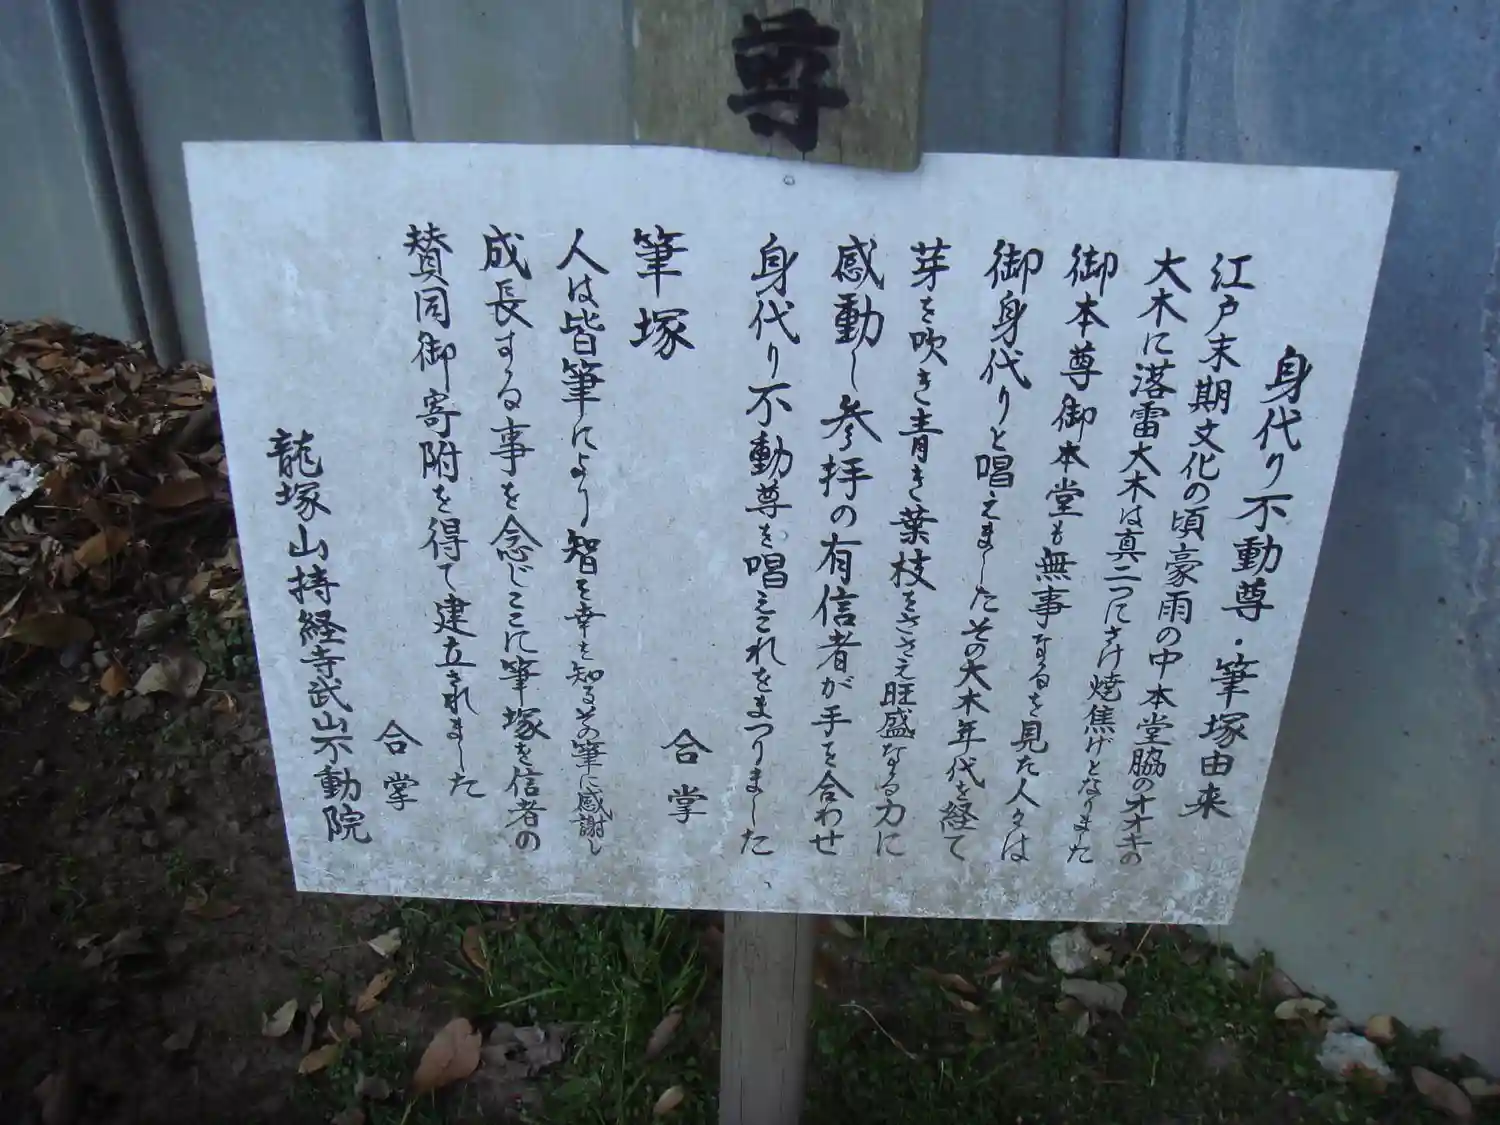 尊
身代り不動尊・筆塚由来
江戸末期文化の頃豪雨の中本堂脇のオオキの
大木に落雷大木は真二つにさけ焼焦げとなりました
御本尊御本堂も無事なるを見た人々は
御身代りと唱えましたその大木年代を経て
芽を吹き青き葉枝をささえ旺盛なる力に
感動し参拝の有信者が手を合わせ
身代り不動尊を唱えこれをまつりました
合掌
筆塚
人は皆筆により智を幸を知るその筆に感謝し
成長する事を念じここに筆塚を信者の
賛同御寄附を得て建立されました
合掌
龍塚山持経寺武山不動院